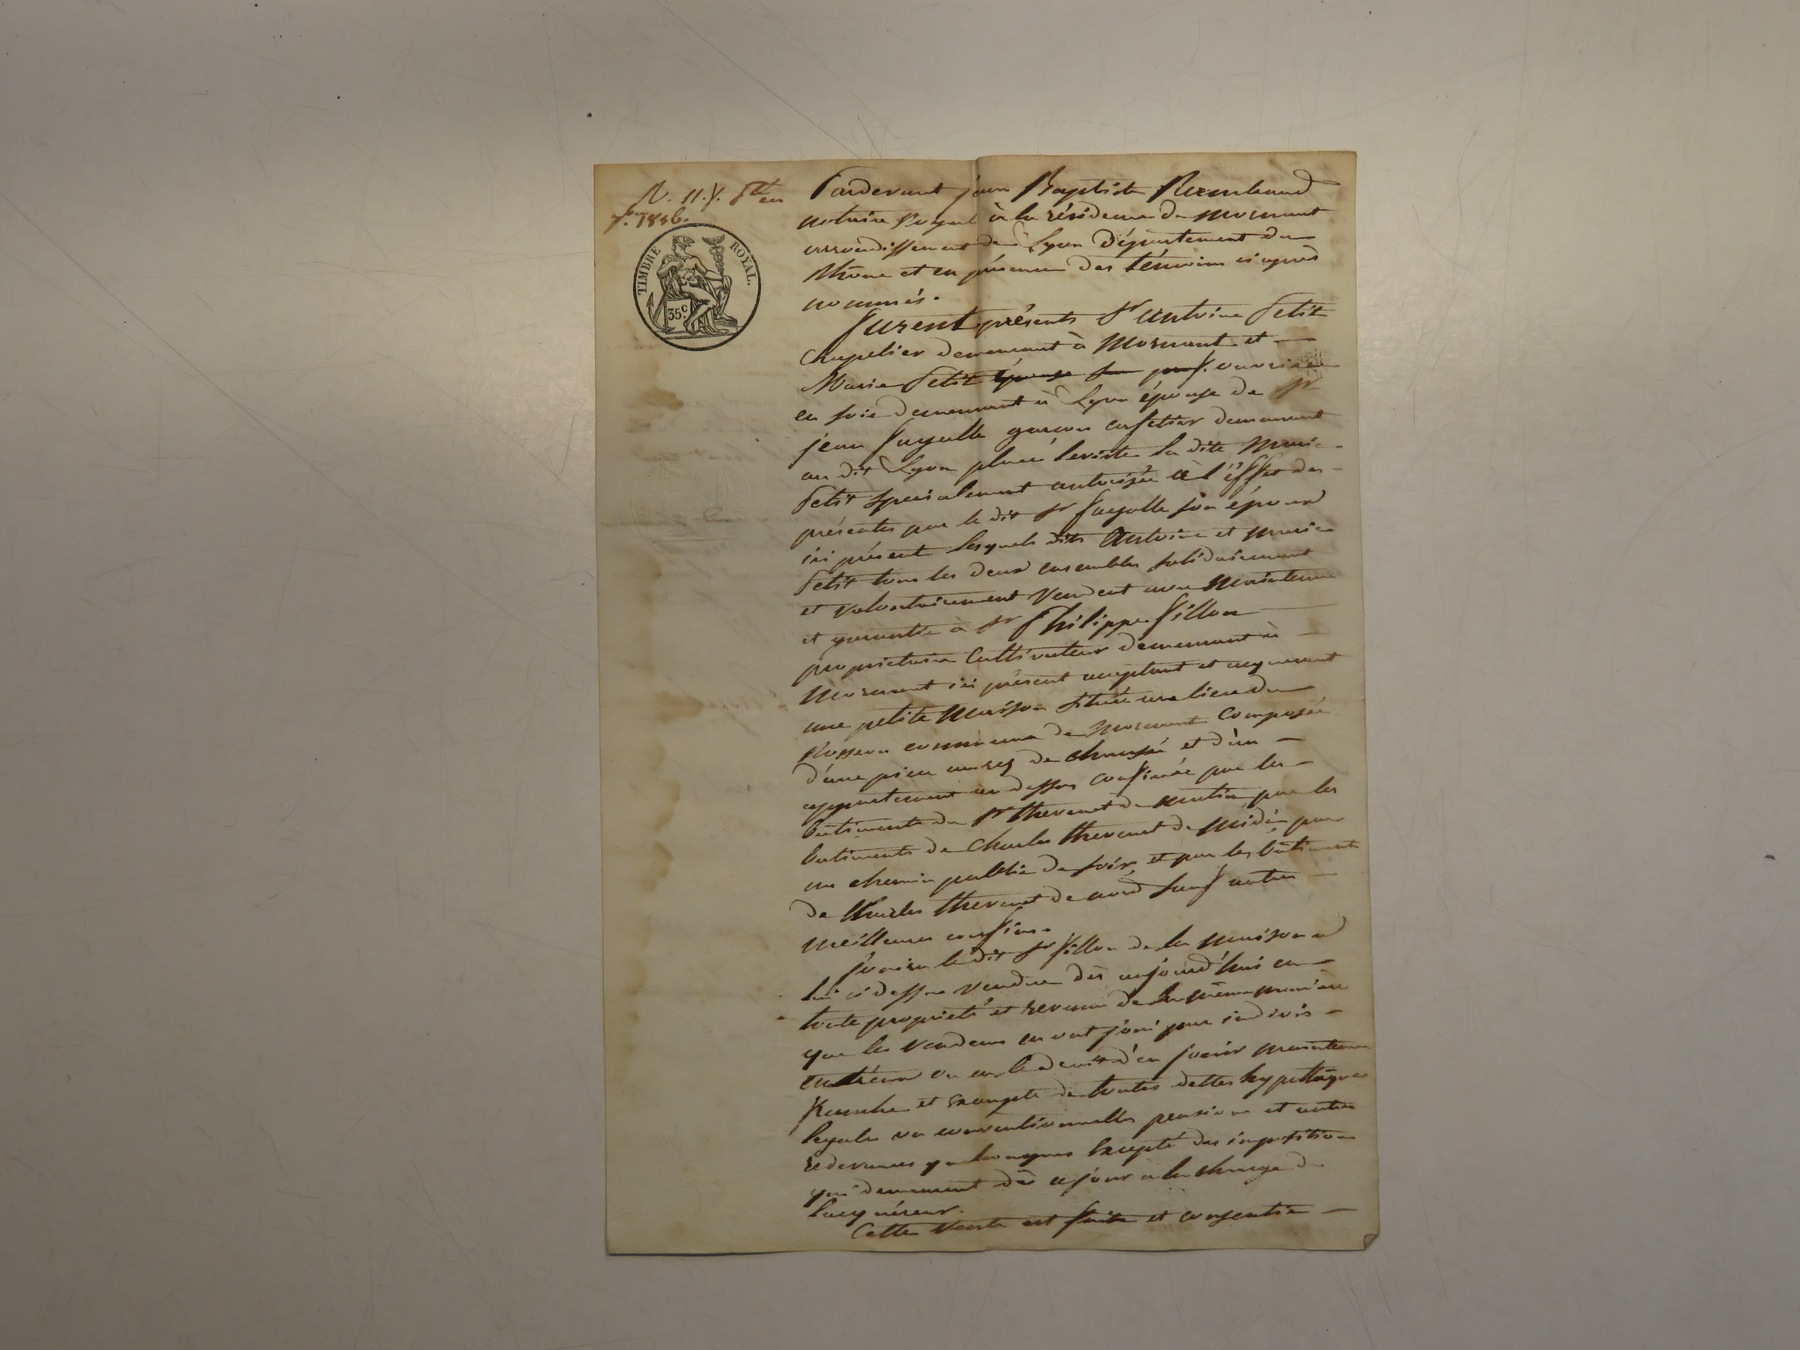 TIMBRE ROYAL.
35c.
Pardevant jean Baptiste
notaire Royal à la résidence de mornant
arrondissement de Lyon département du
Rhône et en présence des témoins ci après
nommés.
furent présents Sr antoine Petit
Chapelier demeurant à Mornant et
Marie Petit épouse ouvrière
en soie demeurant à Lyon épouse de Sr
jean fayolle garçon cafetier demeurant
au dit Lyon place leviste la dite Marie
Petit spécialement autorisée à l'effet des
présentes par le dit Sr fayolle son époux
ici présent lesquels dits Antoine et marie
Petit tous les deux ensembles solidairement
et volontairement vendent avec Maintenue
et garantie à Sr Philippe fillon
propriétaire Cultivateur demeurant à
Mornant ici présent acceptant et acquerant
une petite Maison située au lieu du
commune de Mornant Composée
d'une pièce au rez de chaussée et d'un
appartement au dessus confinée par les
batiments du Sr thevenet de matin par les
batiments de Charles thevenet de midi par
un chemin public de soir, et par les bâtiments
de Charles thevenet de nord sauf autres
meilleurs confins.
jouira le dit Sr fillon de la maison à
lui ci dessus vendue dès aujourd'hui en
toute propriété et revenu de la même manière
que les vendeurs en ont joui par indivis
entr'eux ou eu le droit d'en jouir maintenue
franche et exempte de toutes dettes hypothèques
légales ou conventionnelles pensions et autres
redevances quelconques Excepté des impositions
qui demeurent dès ce jour à la charge de
l'acquéreur.
Cette Vente est faite et consentie